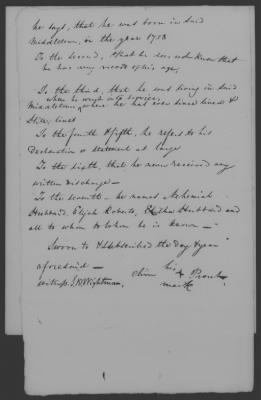 he says, that he was born in said
Middletown, in the year 1753
To the second, that he does not know that
he has any record of his age,
To the third, that he was living in said
when he went into service,
Middletown, where he had ever since lived &
still lives
To the fourth & fifth, he refers to his
Declaration & statement at large
To the sixth, that he never received any
written discharge —
To the seventh — he names Nehemiah
Hubbard, Elijah Roberts, Hubbard and
all to whom he is known —
Sworn to & subscribed the day & year
aforesaid —
witness, Wightman,
his
mark